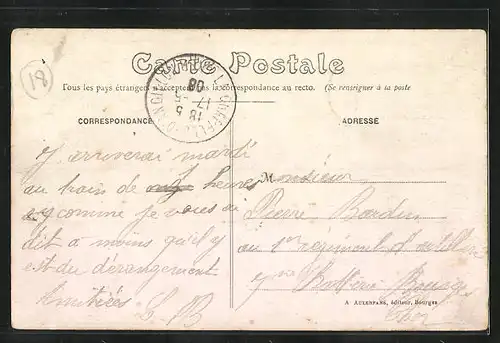 18
Carte Postale
Tous les pays étrangers n'acceptent pas la correspondance au recto. (Se renseigner à la poste
CORRESPONDANCE
ADRESSE
J'arriverai mardi
au train de heures
comme je vous ai
dit à moins qu'il y
est du dérangement
Amitiés L B
Monsieur
Pierre Bardin
au 1er régiment d'artillerie
Batterie Bourges
Cher
A AULENFANS, éditeur, Bourges